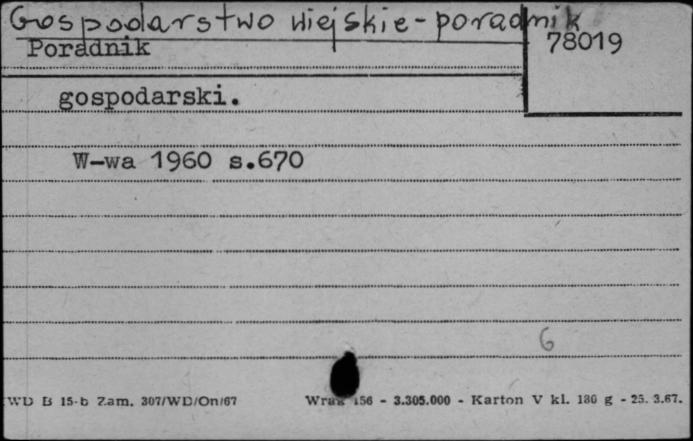 Gospodarstwo wiejskie - poradnik
Poradnik
78019
gospodarski.
W-wa 1960 s.670
6
WD B 15-b Zam. 307/WD/On/67 156 - 3.305.000 - Karton V kl. 180 g - 25. 3.67.